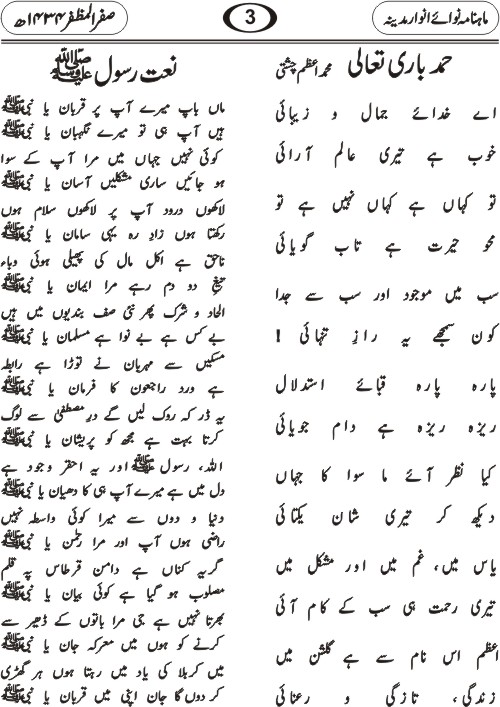 ماہنامہ نوائے انوار مدینہ
3
صفر المظفر ۱۴۳۴ھ
حمد باری تعالی محمد اعظم چشتی
اے خدائے جمال و زیبائی
خوب ہے تیری عالم آرائی
تو کہاں ہے کہاں نہیں ہے تو
محو حیرت ہے تاب گویائی
سب میں موجود اور سب سے جدا
کون سمجھے یہ رازِ تنہائی !
پارہ پارہ قبائے استدلال
ریزہ ریزہ ہے دام جویائی
کیا نظر آئے ما سوا کا جہاں
دیکھ کر تیری شان یکتائی
یاس میں، غم میں اور مشکل میں
تیری رحمت ہی سب کے کام آئی
اعظم اس نام سے ہے گلشن میں
زندگی، تازگی و رعنائی
نعت رسول ﷺ
ماں باپ میرے آپ پر قربان یا نبیﷺ
ہیں آپ ہی تو میرے نگہبان یا نبیﷺ
کوئی نہیں جہاں میں مرا آپ کے سوا
ہو جائیں ساری مشکلیں آسان یا نبیﷺ
لاکھوں درود آپ پر لاکھوں سلام ہوں
رکھتا ہوں زادِ رہ یہی سامان یا نبیﷺ
ناحق ہے اکل مال کی پھیلی ہوئی وباء
تیغِ دو دم رہے مرا ایمان یا نبیﷺ
الحاد و شرک پھر نئی صف بندیوں میں ہیں
بے کس ہے بے نوا ہے مسلمان یا نبیﷺ
مسکیں سے مہربان نے توڑا ہے رابطہ
ہے ورد راجعون کا فرمان یا نبیﷺ
یہ ڈر کہ روک لیں گے درِ مصطفیٰ سے لوگ
کرتا بہت ہے مجھ کو پریشان یا نبیﷺ
اللہ، رسول ﷺ اور یہ احقر وجود ہے
دل میں ہے میرے آپ ہی کا دھیان یا نبیﷺ
دنیا و دوں سے میرا کوئی واسطہ نہیں
راضی ہوں آپ اور مرا رحمٰن یا نبیﷺ
گریہ کناں ہے دامن قرطاس پہ قلم
مصلوب ہو گیا ہے کوئی بیان یا نبیﷺ
بھرتا نہیں ہے جی مرا باتوں کے ڈھیر سے
کرنے کو ہوں میں معرکہ جان یا نبیﷺ
میں کربلا کی یاد میں رہتا ہوں ہر گھڑی
کر دوں گا جان اپنی میں قربان یا نبیﷺ